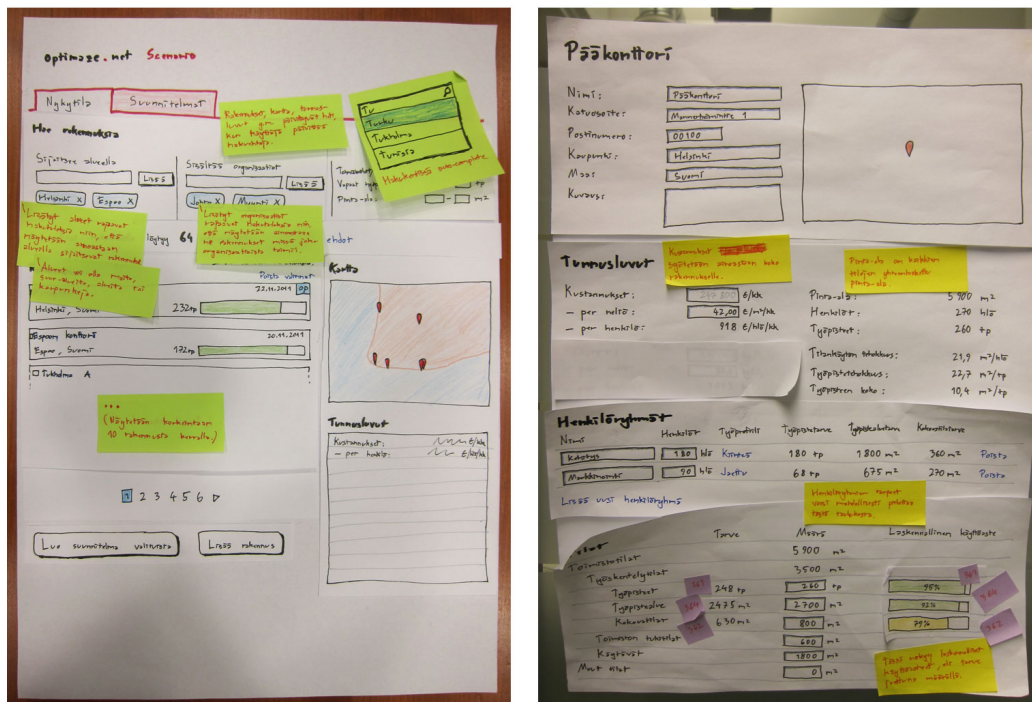 optimaze.net Scenario
Nykytila Suunnitelmat
Rakennukset, kartta, tunnus-
luvut ym. päivittyvät heti,
kun käyttäjä päivittää
hakuehtoja.
Tu
Turku
Tukholma
Tunisia
Hakukentissä auto-complete.
Hae rakennuksia
Sijaitsee alueella
Lisää
Helsinki X Espoo X
Sisältää organisaatiot
Lisää
X Muumit X
Pinta-ala: - m2
Lisätyt alueet rajaavat
hakutuloksia niin, että
näytetään ainoastaan
alueilla sijaitsevat rakennukset.
Alueet voi olla maita,
kaupunkeja.
64
Lisätyt organisaatiot
rajaavat hakutuloksia niin,
että näytetään ainoastaan
ne rakennukset missä joku
organisaatioista toimii.
ehdot
Poista valinnat
22.11.2011
Helsinki, Suomi 232tp
Espoon konttori 20.11.2011
Espoo, Suomi 172tp
Tukholma A
...
(Näytetään korkeintaan
10 rakennusta kerralla.)
1 2 3 4 5 6
Luo suunnitelma valituista
Lisää rakennus
Kartta
Tunnusluvut
Kustannukset: €/kk
— per henkilö: €/hlö/kk
Pääkonttori
Nimi: Pääkonttori
Katuosoite: Mannerheimintie 1
Postinumero: 00100
Kaupunki: Helsinki
Maa: Suomi
Kuvaus:
Tunnusluvut
Kustannukset
syötetään ainoastaan koko
rakennukselle.
Pinta-ala on kaikkien
tilojen yhteenlaskettu
pinta-ala.
Kustannukset: €/kk
— per neliö: 42,00 €/m²/kk
— per henkilö: 918 €/hlö/kk
Pinta-ala: 5 900 m²
Henkilöt: 270 hlö
Työpisteet: 260 tp
Tilankäytön tehokkuus: 21,9 m²/hlö
Työpistetehokkuus: 22,7 m²/tp
Työpisteen koko: 10,4 m²/tp
Henkilöryhmät
Nimi Henkilöt Työprofiili Työpistetarve Työpistealuetarve Kokoustilatarve
Kehitys 180 hlö Kiinteä 180 tp 1 800 m² 360 m² Poista
Markkinointi 90 hlö Jaettu 68 tp 675 m² 270 m² Poista
Lisää uusi henkilöryhmä
Henkilöryhmän tarpeet
voisi mahdollisesti poistaa
tästä taulukosta.
Tilat Tarve Määrä Laskennallinen käyttöaste
Toimistotilat 5 900 m²
Työskentelytilat 3 500 m²
Työpisteet 363 248 tp 260 tp 95% 363
Työpistealue 364 2 475 m² 2 700 m² 92% 364
Kokoustilat 362 630 m² 800 m² 79% 362
Toimiston tukitilat 600 m²
Käytävät 1800 m²
Muut tilat 0 m²
Tässä näkyy laskennalliset
käyttöasteet, eli tarve
jaettuna määrällä.